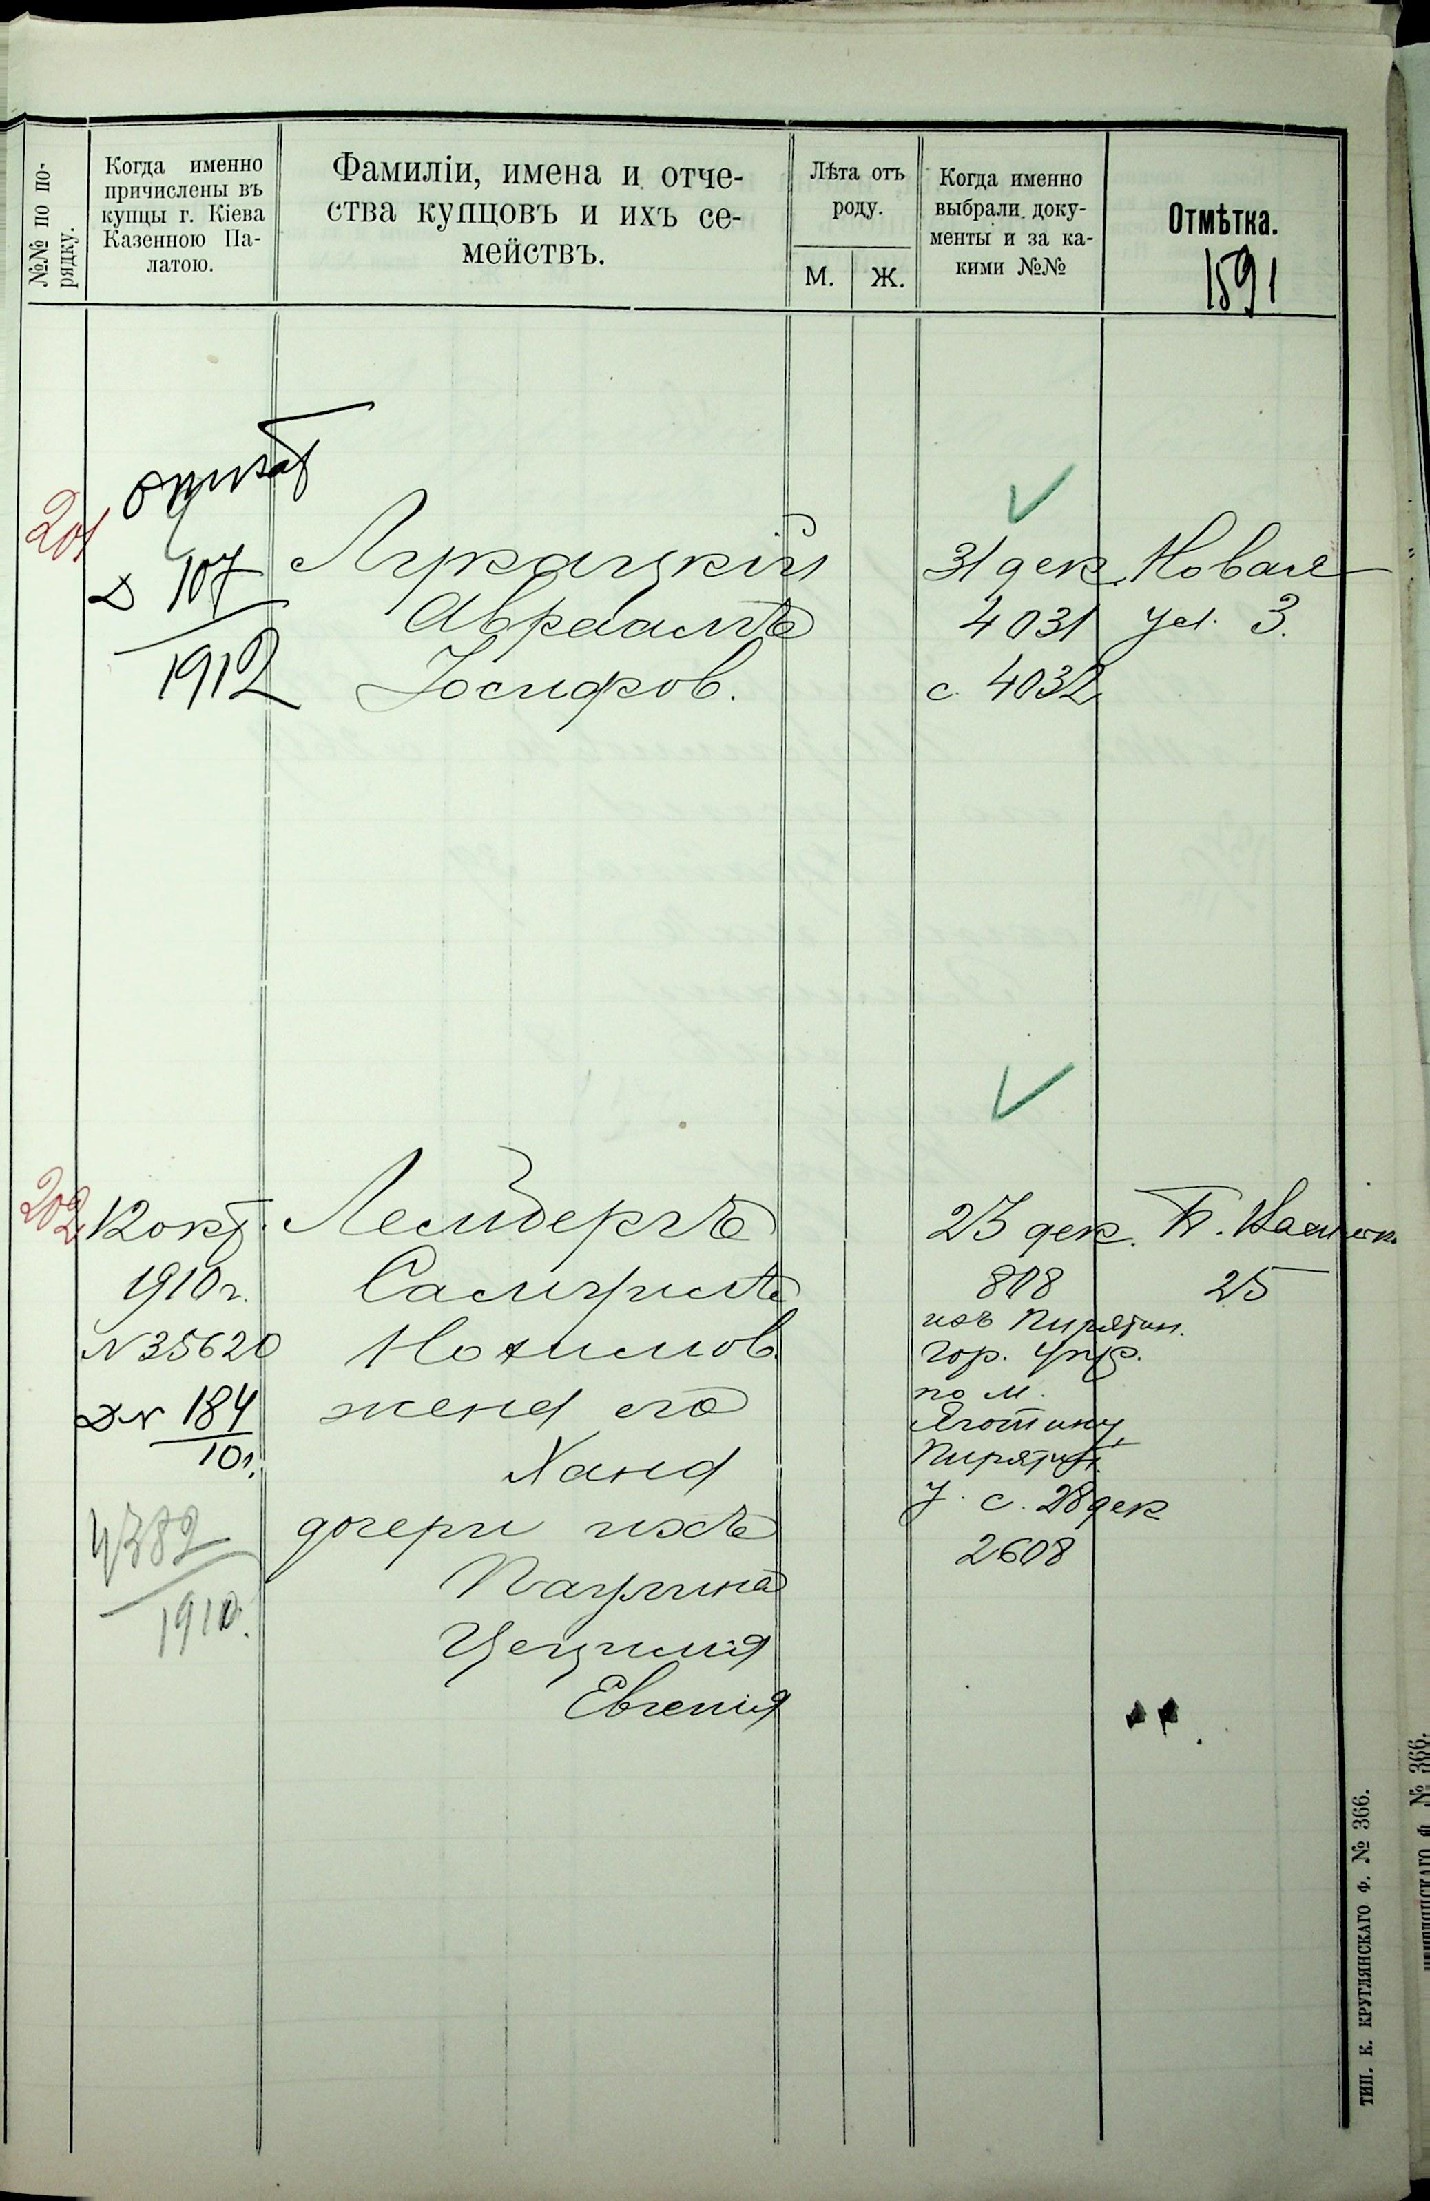 №№ по по-
рядку.
Когда именно
причислены въ
купцы г. Кіева
Казенною Па-
латою.
Фамиліи, имена и отче-
ства купцовъ и ихъ се-
мействъ.
Лѣта отъ
роду.
М.
Ж.
Когда именно
выбрали доку-
менты и за ка-
кими №№
Отмѣтка.
1591
201
Д 107
1912
Лукацкій
Авраамъ
Іосифов.
31 дек.
4031
с 4032
Новая
ул. 3.
202
12 окт.
1910 г.
N 35620
Д N 184
10 г.
4382
1910.
Лембергъ
Самуилъ
Нохимов.
жена его
Хана
дочери ихъ
Паулина
Цецилія
Евгенія
23 дек.
808
изъ Пирятин.
Гор. Упр.
по м.
Яготину
Пирятин.
у. с. 28 дек
2608
25
ТИП. К. КРУГЛЯНСКАГО Ф. № 366.